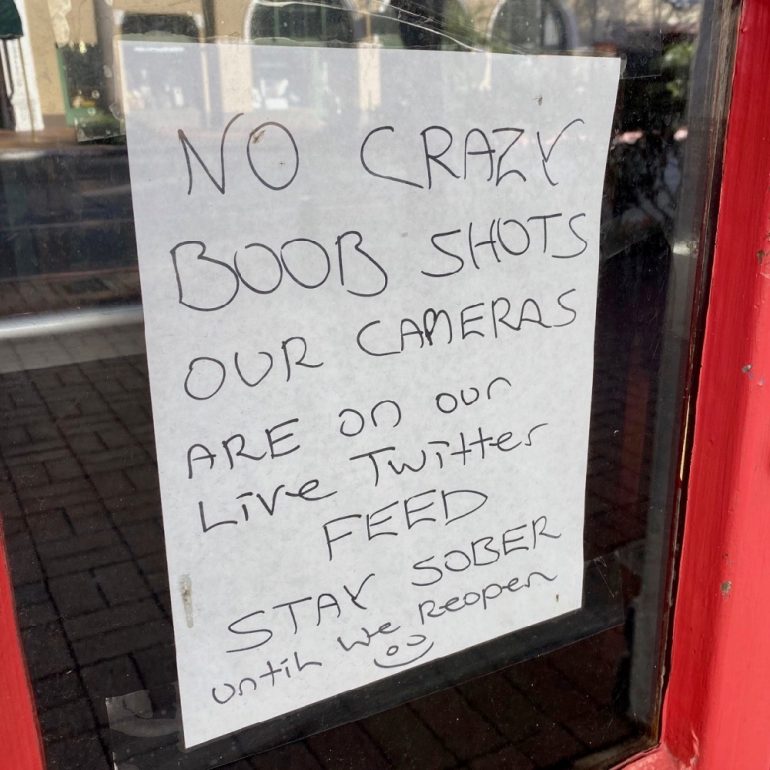 NO CRAZY
BOOB SHOTS
OUR CAMERAS
ARE on our
Live Twitter
FEED
STAY SOBER
until we Reopen